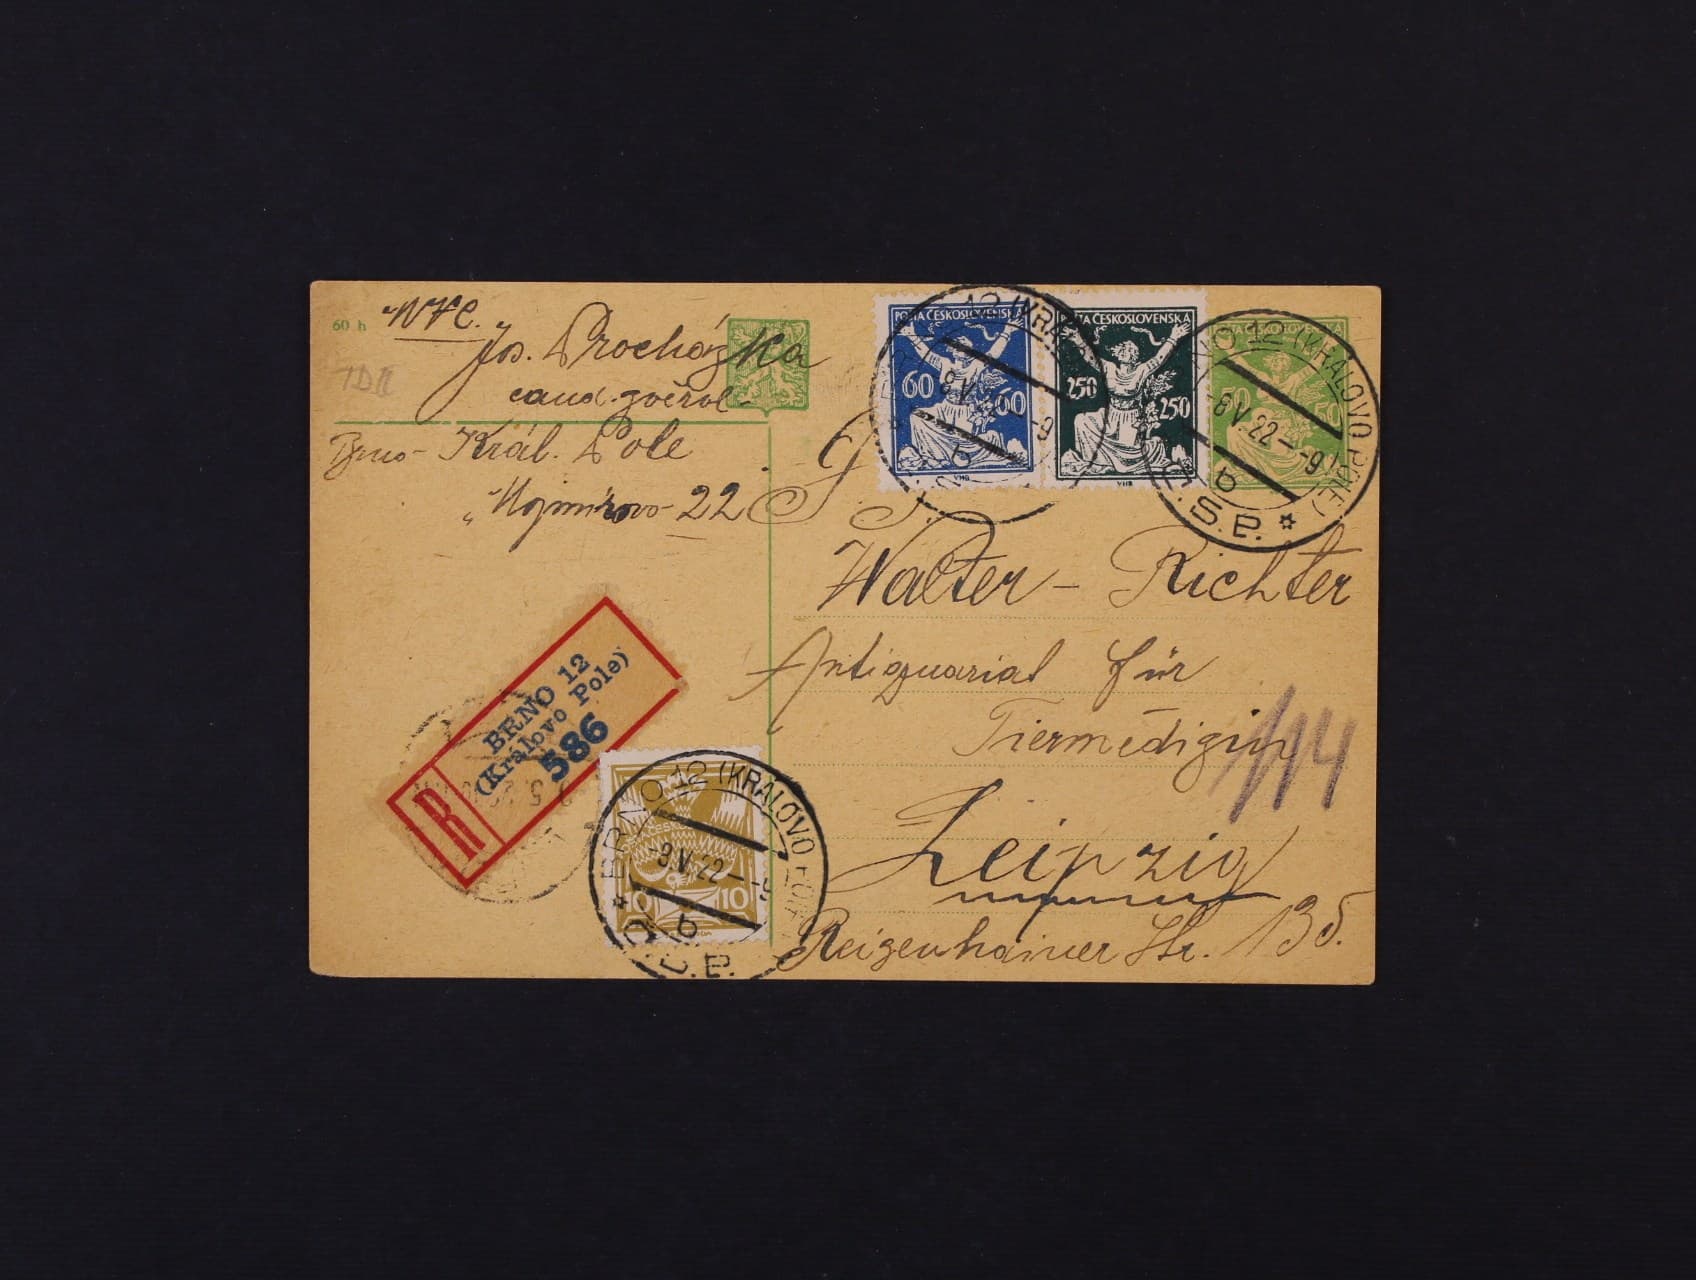 60 h
Jos. Procházka
cand. zvěrol.
Brno - Král. Pole
Mojmírovo 22
POŠTA ČESKOSLOVENSKÁ
60 60
POŠTA ČESKOSLOVENSKÁ
250 250
VHB VHB
POŠTA ČESKOSLOVENSKÁ
50 50
BRNO 12 (KRÁLOVO POLE)
-8.V.22--9
b
Č.S.P.
Walter - Richter
Antiquariat für
Tiermedizin
114
Leipzig
Reizenhainer Str. 135.
R
BRNO 12
(Královo Pole)
586
BRNO 12 (KRÁLOVO POLE)
-8.V.22--9
b
Č.S.P.
10 10